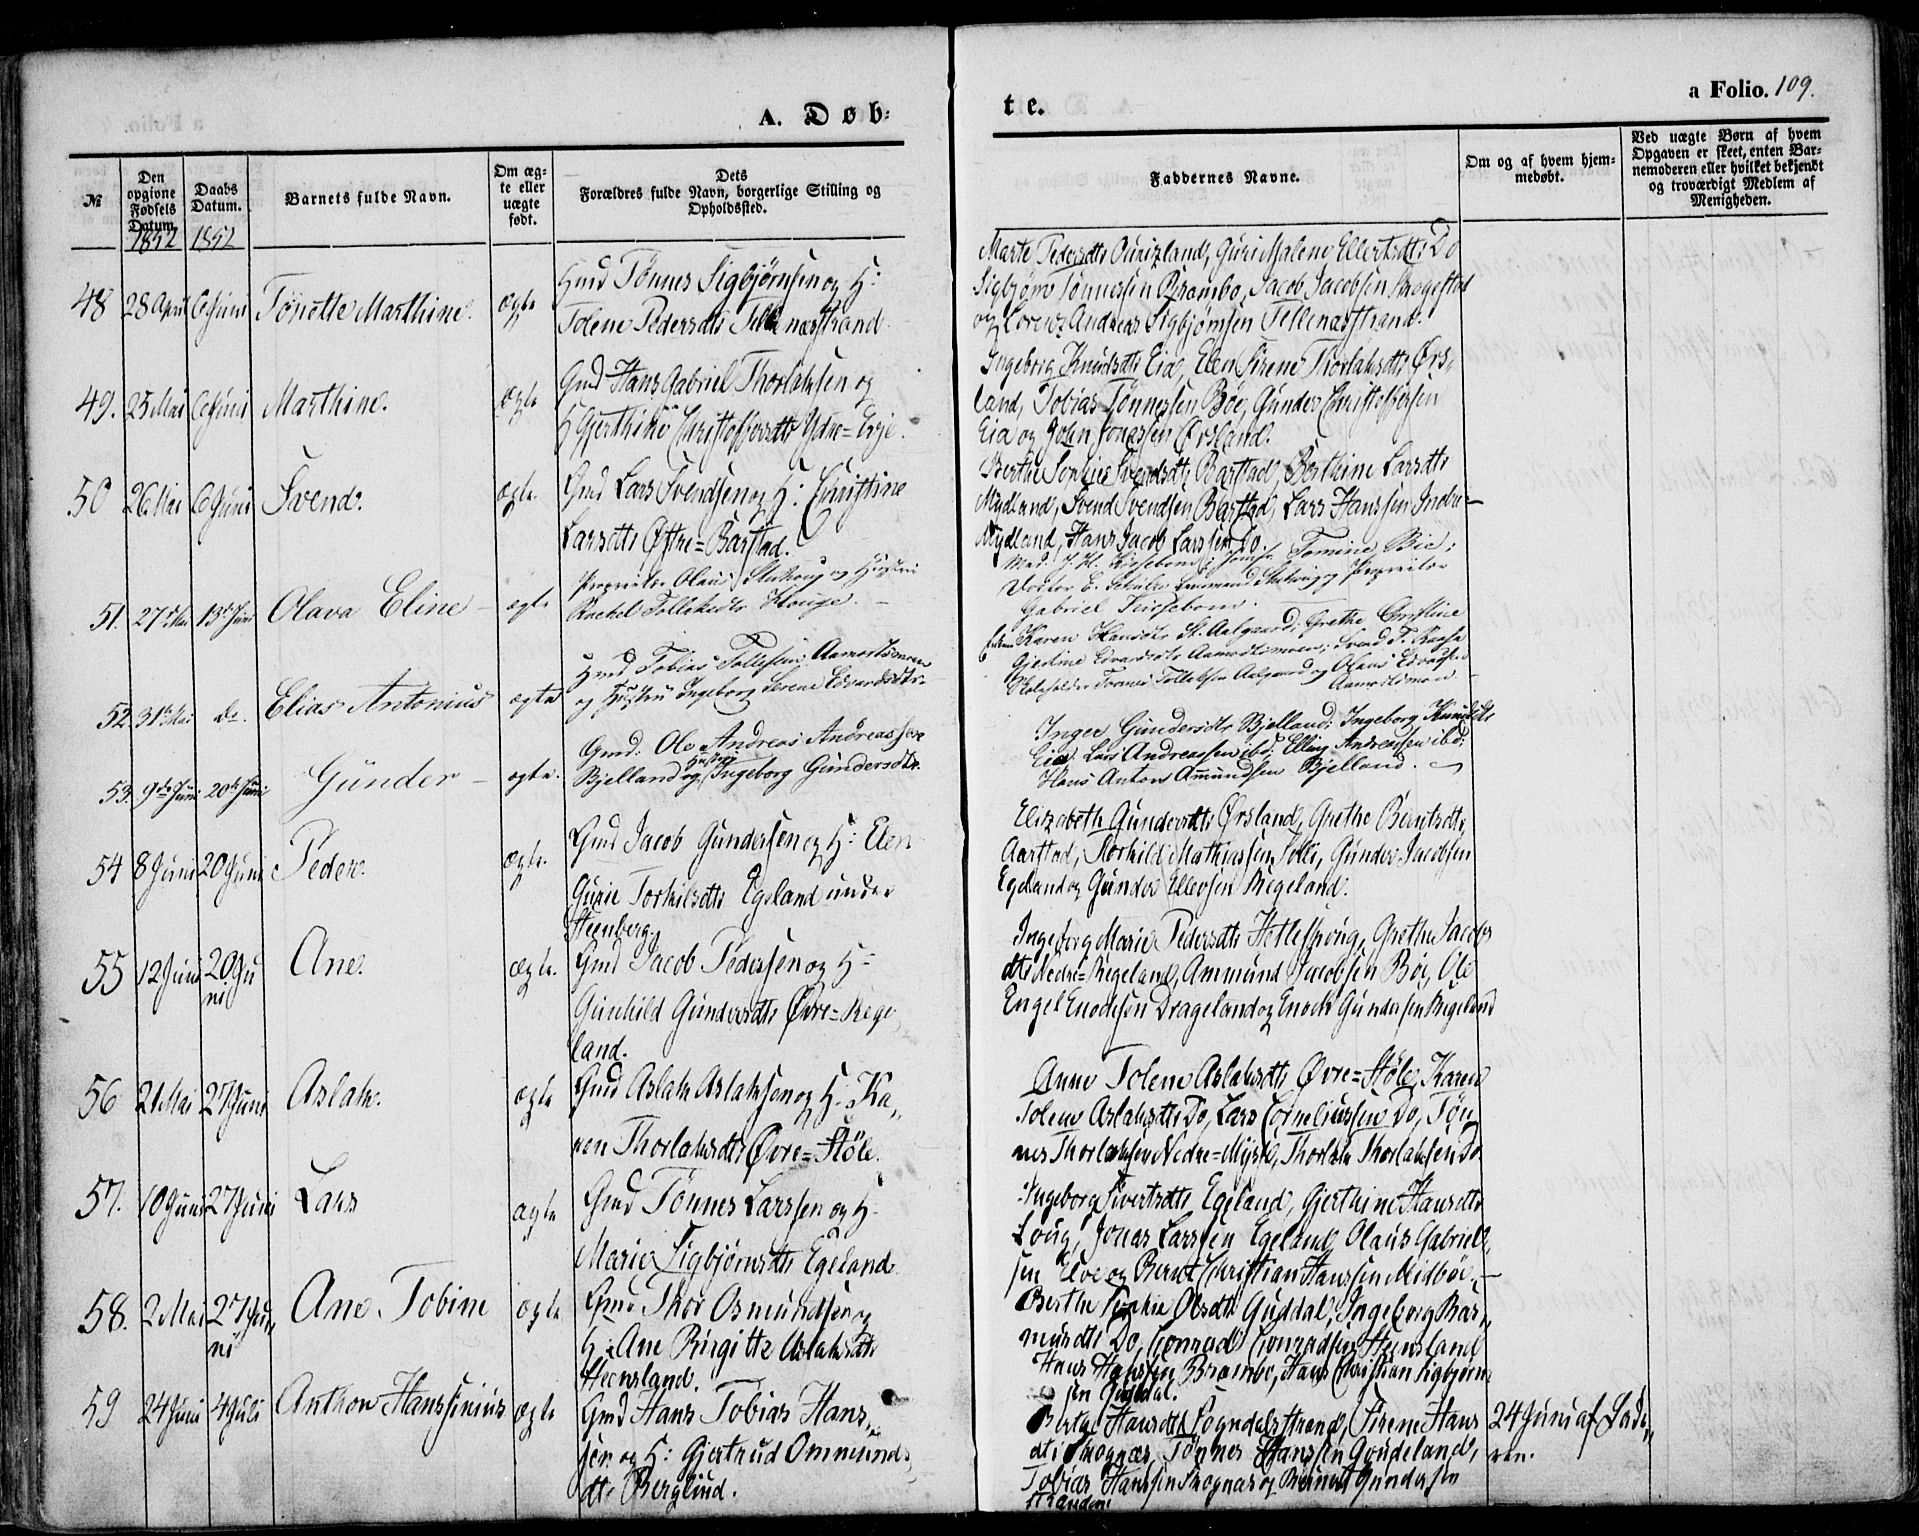 A. Døb-
te.
a Folio. 109.
№
Den opgivne Fødsels Datum.
Daabs Datum.
Barnets fulde Navn.
Om ægte eller uægte født.
Dets Forældres fulde Navn, borgerlige Stilling og Opholdssted.
Faddernes Navne.
Om og af hvem hjemmedøbt.
Ved uægte Børn af hvem Opgaven er skeet, enten Barnemoderen eller hvilket bekjendt og troværdigt Medlem af Menigheden.
1852 1852
48 28 April 6 Juni Tønette Marthine. ægte
Gmd Tønnes Sigbjørnsen og H:
Tolene Pedersdtr Tellenæsstrand
Marte Pedersdtr, Guri Malene Ellertsdtr Do
Sigbjørn Tønnessen Brambo, Jacob Jacobsen Skogestad
og Lorenz Andreas Sigbjørnsen Tellenæsstrand.
49. 25 Mai 6 Juni Marthine. ægte
Gmd Hans Gabriel Thorlaksen og
H Gjerthine Christoffersdtr Ydre=Eije.
Ingeborg Knudsdtr Eia, Elen Sirene Thorlaksdtr Ørs-
land, Tobias Tønnessen Bøe, Gunder Christoffersen
Eia og John Jonassen Ørsland.
50 26 Mai 6 Juni Svend. ægte
Gmd Lars Svendsen og H: Christine
Larsdtr Østre=Barstad.
Berthe Sophie Svendsdtr Barstad, Berthine Larsdtr
Mydland, Svend Svendsen Barstad, Lars Hanssen Indre-
Mydland, Hans Jacob Larssen Do.
51. 27de Mai 13de Juni Olava Eline ægte
Proprietær Olaus og Hustru
Rachel Tollefsdtr Hauge.
Mad. J. H. Kirsebom; Jomfr. Tomine Bie;
Doctor E. Schulze og Proprietær
Gabriel Kirsebom.
52. 31te Mai do. Elias Antonius ægte
Gmd Tobias Tollefsen Aamodtsmoen
og Hustru Ingeborg Serene Edvardsdtr.
Enken Karen Hansdtr St. Aalgaard; Grethe Christine
Gjertine Edvardsdtr Aamodtsmoen; Svend T.
Skoleholder Tønnes Tollefsen Aalgaard og Olaus Edvardsen
Aamodtsmoen
53. 9de Juni 20de Juni Gunder ægte.
Gmd: Ole Andreas Andreassen
Bjelland og Hustru Ingeborg Gundersdtr.
Inger Gundersdtr Bjelland; Ingeborg Knudsdtr
Eia; Lars Andreassen ibd; Elling Andreassen ibd;
Hans Anton Amundsen Bjelland.
54 8 Juni 20 Juni Peder. ægte.
Gmd Jacob Gundersen og H: Elen
Gurie Torkilsdtr Egeland under
Steenberg.
Elizabeth Gundersdtr Ørsland, Grethe Berntsdtr
Aarstad, Torkild Mathiassen Tolli, Gunder Jacobsen
Egeland og Gunder Ellevsen Regeland.
55 12 Juni 20 Ju
ni Ane. ægte.
Gmd Jacob Pedersen og H:
Gunhild Gundersdtr Øvre=Rege
land.
Ingeborg Marie Pedersdtr Hetlesprong, Grethe Jacobs
dtr Nedre=Regeland, Ammund Jacobsen Bøe, Ole
Engel Enochsen Drageland og Enoch Gundersen Regeland
56 2 Mai 27 Juni Aslak. ægte
Gmd Aslak Aslaksen og H: Ka„
ren Thorlaksdtr Øvre=Støle.
Anne Tolene Aslaksdtr Øvre=Støle, Karen
Tolene Aslaksdtr Do, Lars Corneliussen Do, Tøn
nes Thorlaksen Nedre=Mysse, Thorlak Thorlaksen Do
57. 10 Juni 27 Juni Lars ægte
Gmd Tønnes Larssen og H.
Marie Sigbjørnsdtr Egeland
Ingeborg Sivertsdtr Egeland, Gjerthine Hansdtr
Loug, Jonas Larssen Egeland, Olaus Gabriel„
sen Elve og Bernt Christian Hanssen Midbøe.
58. 2 Mai 27 Ju„
ni Ane Tobine ægte
Gmd Thor Osmundsen og
H: Ane Birgitte Aslaksdtr
Steensland.
Berthe Sophie Olsdtr Guddal, Ingeborg Ras„
musdtr Do, Conrad Conradsen Steensland
Hans Hanssen Brambo, Hans Christian Sigbjørn
sen Guddal.
59 24 Juni 4 Juli Anthon Hanssinius ægte
Gmd Hans Tobias Hans„
sen og H: Gjertrud Ommunds„
dtr Berglund.
Berte Hansdtr Sogndalsstrand, Sirene Hans
dtr Skognæs, Tønnes Hanssen Goudeland,
Tobias Hanssen Skognæs og Bernt Gundersen
Stranden.
24 Juni af Fade„
ren.